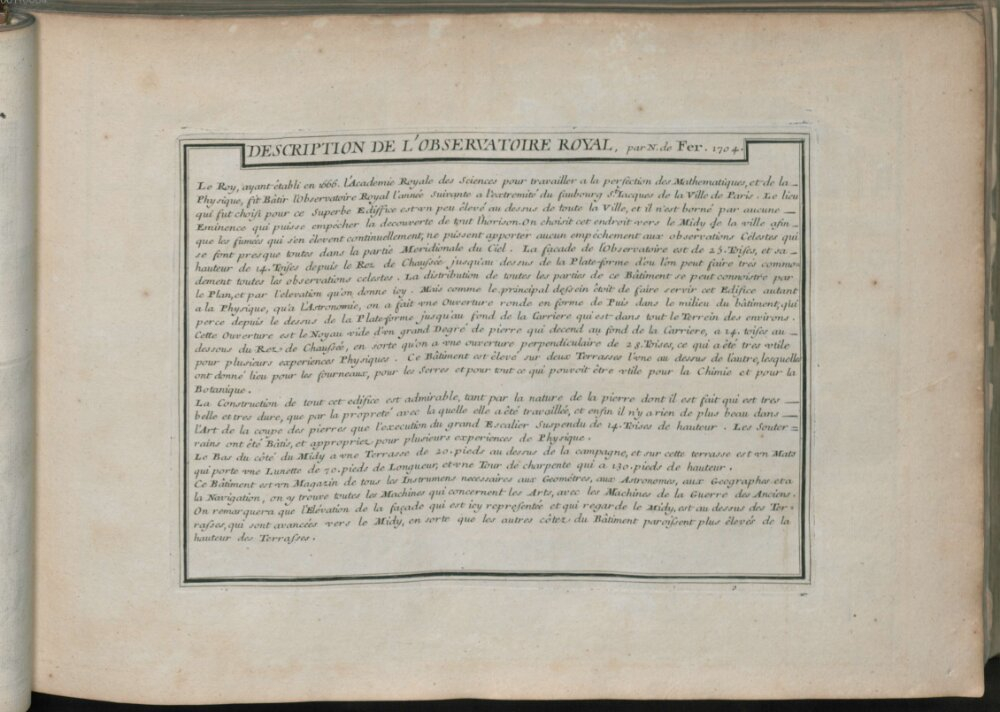 DESCRIPTION DE L'OBSERVATOIRE ROYAL, par N. de Fer. 1704.
Le Roy, ayant établi en 1666. l'Academie Royale des Sciences pour travailler a la perfection des Mathematiques, et de la
Physique, fit Bâtir l'Observatoire Royal l'année Suivante a l'extremité du faubourg St. Jacques de la Ville de Paris. Le lieu
qui fut choisi pour ce Superbe Ediffice est vn peu élevé au dessus de toute la Ville, et il n'est borné par aucune
Eminence qui puisse empêcher la decouverte de tout l'horison. On choisit cet endroit vers le Midy de la ville afin
que les fumées qui s'en élevent continuellement, ne pussent apporter aucun empêchement aux observations Célestes qui
se font presque toutes dans la partie Meridionale du Ciel. La façade de l'Observatoire est de 25. Toises, et sa
hauteur de 14. Toises depuis le Rez de Chaussée jusqu'au dessus de la Plate-forme d'ou l'on peut faire tres commo-
dement toutes les observations celestes. La distribution de toutes les parties de ce Bâtiment se peut connoistre par
le Plan, et par l'elevation qu'on donne icy. Mais comme le principal dessein étoit de faire servir cet Edifice autant
a la Physique, qu'a l'Astronomie, on a fait vne Ouverture ronde en forme de Puis dans le milieu du bâtiment, qui
perce depuis le dessus de la Plate-forme jusqu'au fond de la Carriere qui est dans tout le Terrein des environs.
Cette Ouverture est le Noyau vide d'vn grand Degré de pierre qui decend au fond de la Carriere, a 14. toises au
dessous du Rez de Chaussée, en sorte qu'on a vne ouverture perpendiculaire de 28. Toises, ce qui a été tres vtile
pour plusieurs experiences Physiques. Ce Bâtiment est élevé sur deux Terrasses l'vne au dessus de l'autre, lesquelles
ont donné lieu pour les fourneaux, pour les Serres et pour tout ce qui pouvoit être vtile pour la Chimie et pour la
Botanique.
La Construction de tout cet edifice est admirable, tant par la nature de la pierre dont il est fait qui est tres
belle et tres dure, que par la propreté avec la quelle elle a été travaillée, et enfin il n'y a rien de plus beau dans
l'Art de la coupe des pierres que l'execution du grand Escalier Suspendu de 14. Toises de hauteur. Les Souter=
rains ont été Bâtis, et appropriez pour plusieurs experiences de Physique.
Le Bas du côté du Midy a vne Terrasse de 20. pieds au dessus de la campagne, et sur cette terrasse est vn Mats
qui porte vne Lunette de 70. pieds de Longueur, et vne Tour de charpente qui a 130. pieds de hauteur.
Ce Bâtiment est vn Magazin de tous les Instrumens necessaires aux Geométres, aux Astronomes, aux Geographes et a
la Navigation, on y trouve toutes les Machines qui concernent les Arts, avec les Machines de la Guerre des Anciens.
On remarquera que l'Elévation de la façade qui est icy representée et qui regarde le Midy, est au dessus des Ter-
rasses, qui sont avancées vers le Midy, en sorte que les autres côtez du Bâtiment paroissent plus élevés de la
hauteur des Terrasses.